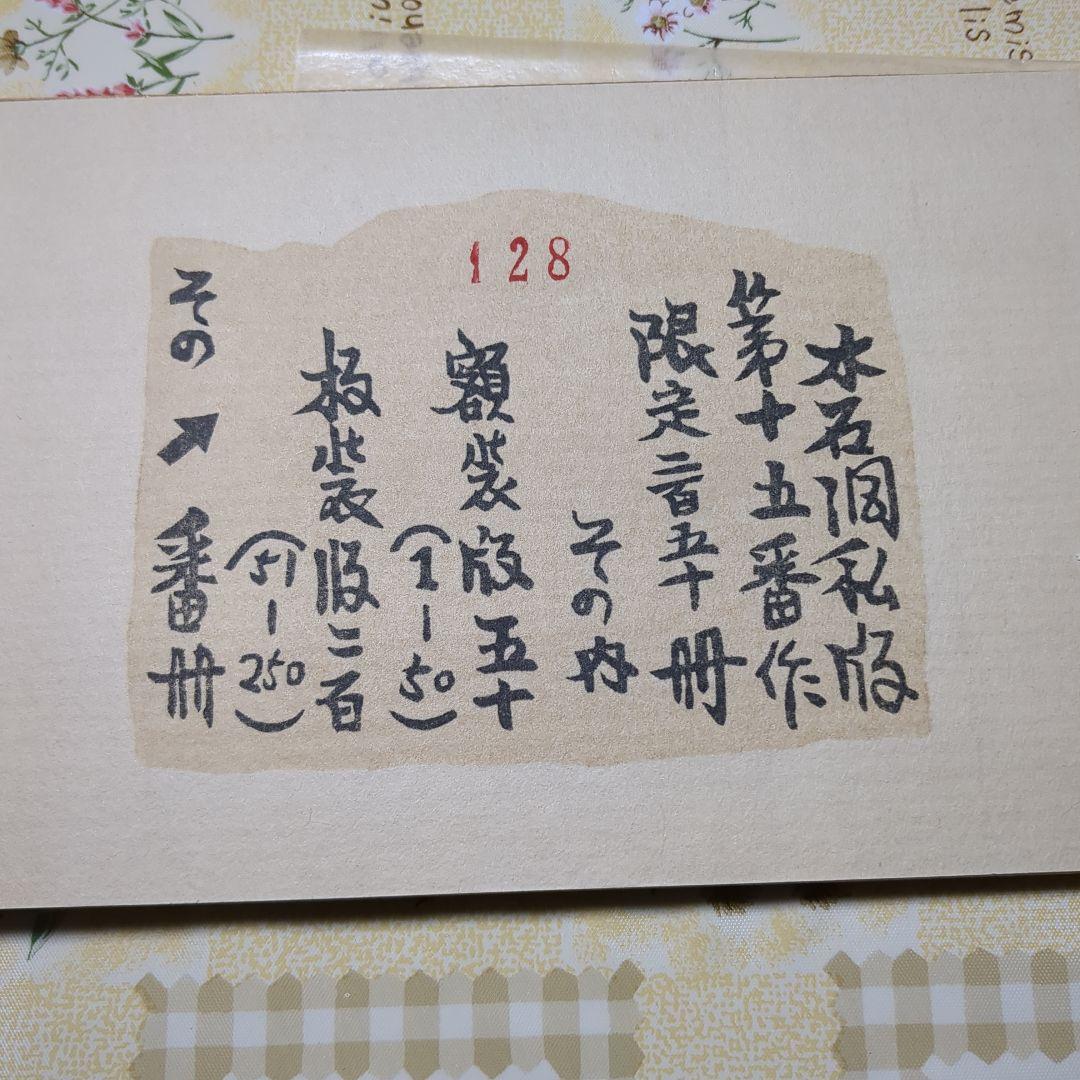 128
水石洞私版
第十五番作
限定二百五十冊
その内
額装版五十
(1-50)
板装版二百
(51-250)
その➚番冊